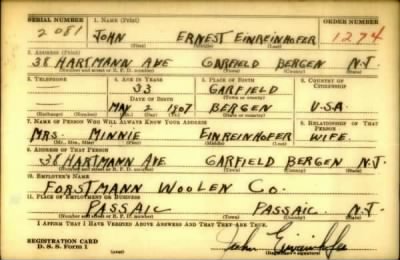 SERIAL NUMBER 1. NAME (Print) ORDER NUMBER
2081 JOHN ERNEST EINREINHOFER 1274
(First) (Middle) (Last)
2. ADDRESS (Print)
38 HARTMANN AVE GARFIELD BERGEN N.J.
(Number and street or R. F. D. number) (Town) (County) (State)
3. TELEPHONE 4. AGE IN YEARS 5. PLACE OF BIRTH 6. COUNTRY OF CITIZENSHIP
33 GARFIELD
DATE OF BIRTH (Town or county)
MAY 2 1907 BERGEN U.S.A.
(Mo.) (Day) (Yr.) (State or country)
7. NAME OF PERSON WHO WILL ALWAYS KNOW YOUR ADDRESS 8. RELATIONSHIP OF THAT PERSON
MRS. MINNIE EINREINHOFER WIFE
(Mr., Mrs., Miss) (First) (Middle) (Last)
9. ADDRESS OF THAT PERSON
38 HARTMANN AVE GARFIELD BERGEN N.J.
(Number and street or R. F. D. number) (Town) (County) (State)
10. EMPLOYER'S NAME
FORSTMANN WOOLEN CO.
11. PLACE OF EMPLOYMENT OR BUSINESS
PASSAIC PASSAIC N.J.
(Number and street or R. F. D. number) (Town) (County) (State)
I AFFIRM THAT I HAVE VERIFIED ABOVE ANSWERS AND THAT THEY ARE TRUE.
REGISTRATION CARD
D. S. S. Form 1 John Einreinhofer
(Registrant's signature)